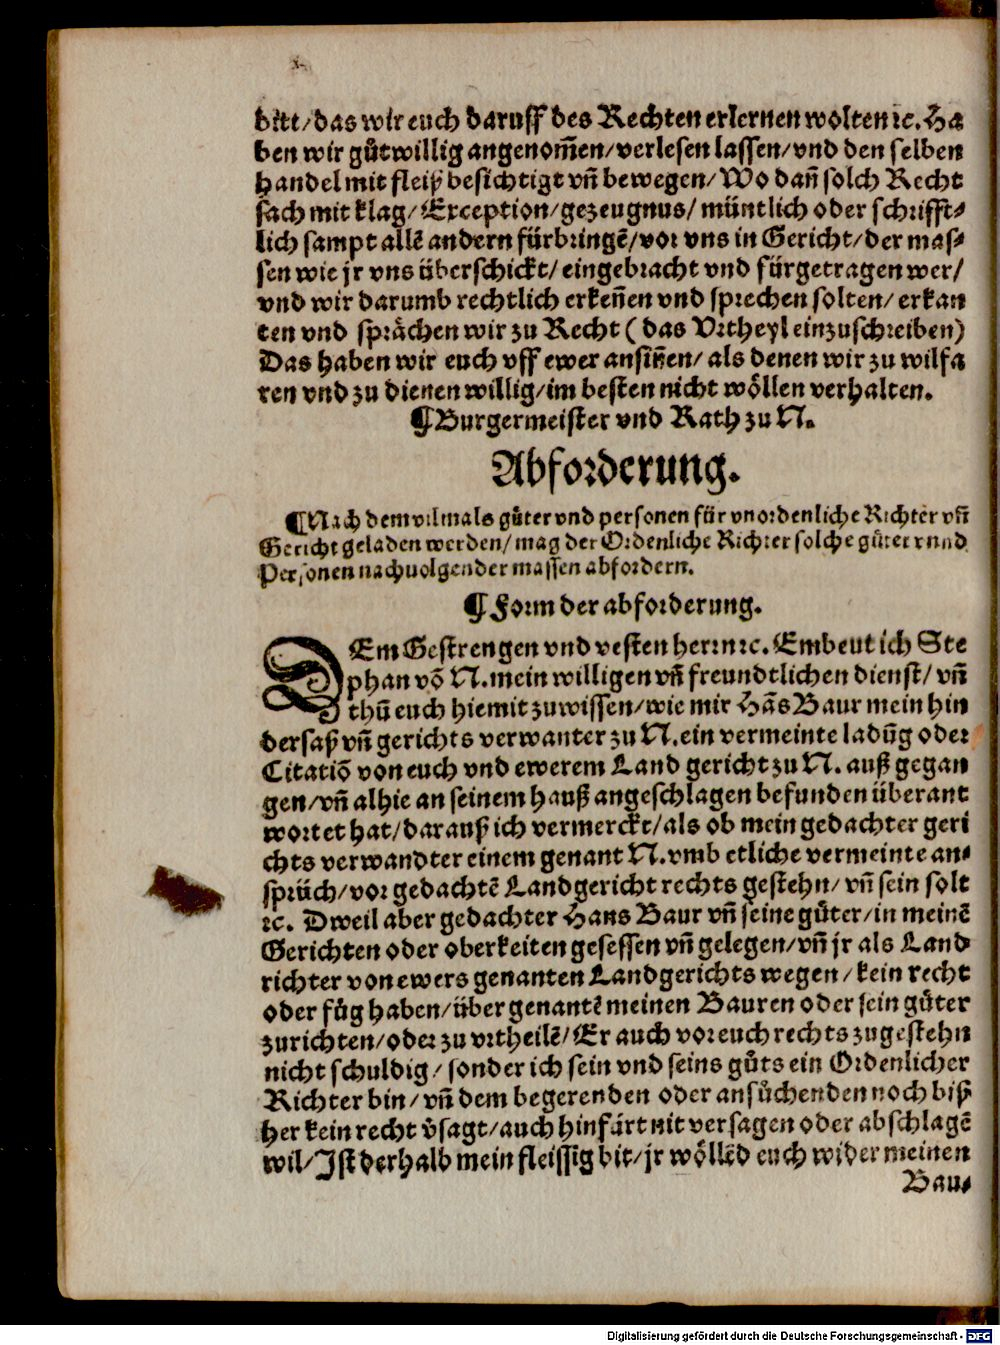 bitt/das wir euch daruff des Rechten erlernen wolten ꝛc. Ha
ben wir guͤtwillig angenom̃en/verlesen lassen/vnd den selben
handel mit fleiß besichtigt vñ bewegen/Wo dañ solch Recht
sach mit klag/Exception/gezeugnus/muͤntlich oder schrifft⸗
lich sampt allẽ andern fürbringẽ/vor vns in Gericht/der mas⸗
sen wie jr vns überschickt/eingebracht vnd fürgetragen wer/
vnd wir darumb rechtlich erkeñen vnd sprechen solten/erkan
ten vnd spraͤchen wir zu Recht (das Vrtheyl einzuschreiben)
Das haben wir euch vff ewer ansiñen/als denen wir zu wilfa
ren vnd zu dienen willig/im besten nicht woͤllen verhalten.
¶Burgermeister vnd Rath zu N.
Abforderung.
¶Nach dem vilmals guͤter vnd personen für vnordenliche Richter vñ
Gericht geladen werden/mag der Ordenliche Richter solche guͤter vnnd
Personen nachuolgender massen abfordern.
¶Form der abforderung.
DEm Gestrengen vnd vesten herrn ꝛc. Embeut ich Ste
phan võ N. mein willigen vñ freundtlichen dienst/vñ
thũ euch hiemit zuwissen/wie mir Hãs Baur mein hin
dersaß vñ gerichts verwanter zu N. ein vermeinte ladũg oder
Citatiõ von euch vnd ewerem Land gericht zu N. auß gegan
gen/vñ alhie an seinem hauß angeschlagen befunden überant
wortet hat/darauß ich vermerckt/als ob mein gedachter geri
chts verwandter einem genant N. vmb etliche vermeinte an⸗
sprüch/vor gedachtẽ Landgericht rechts gestehn/vñ sein solt
ꝛc. Dweil aber gedachter Hans Baur vñ seine guͤter/in meinẽ
Gerichten oder oberkeiten gesessen vñ gelegen/vñ jr als Land
richter von ewers genanten Landgerichts wegen/kein recht
oder fuͤg haben/über genantẽ meinen Bauren oder sein guͤter
zurichten/oder zu vrtheilẽ/Er auch vor euch rechts zugestehn
nicht schuldig/sonder ich sein vnd seins guͤts ein Ordenlicher
Richter bin/vñ dem begerenden oder ansuͤchenden noch biß
her kein recht v̊sagt/auch hinfürt nit versagen oder abschlagẽ
wil/Jst derhalb mein fleissig bit/jr woͤllẽd euch wider meinen
Bau⸗
Digitalisierung gefördert durch die Deutsche Forschungsgemeinschaft - DFG